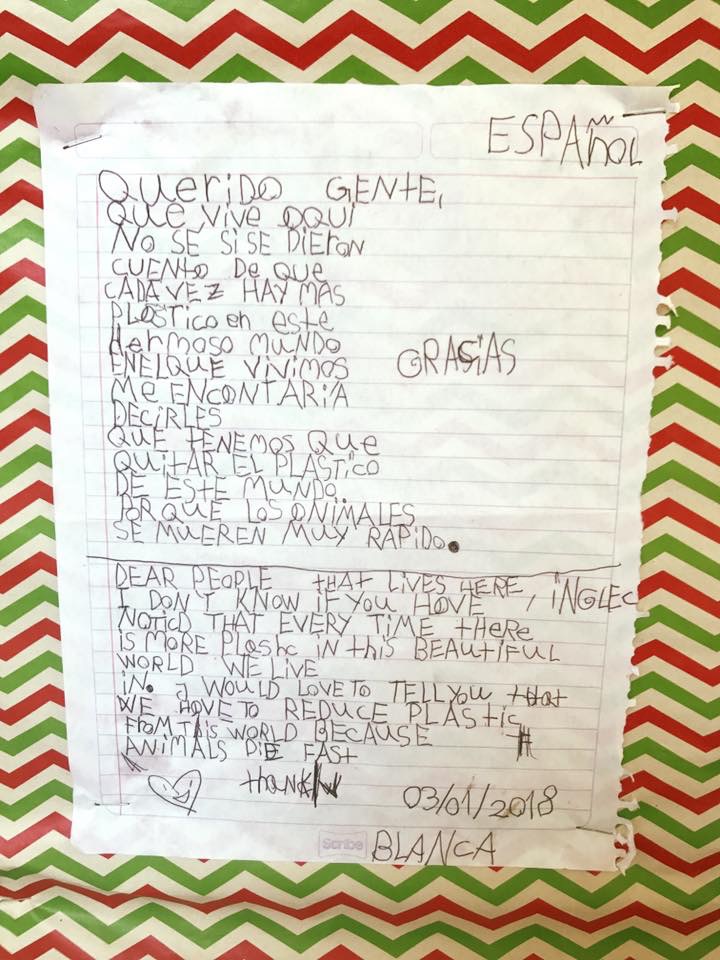 ESPAÑOL
QUERIDO GENTE,
QUE VIVE AQUI
NO SE SI SE DIERON
CUENTO DE QUE
CADA VEZ HAY MAS
PLOSTICO en este
Hermoso MUNDO
ENELQUE VIVIMOS
GRASIAS
ME ENCONTARIA
DECIRLES
QUE TENEMOS QUE
QUITAR EL PLASTICO
DE ESTE MUNDO
PORQUE LOS ONIMALES
SE MUEREN MUY RAPIDO.
DEAR PEOPLE tHAT LIVES HERE,
I DON'T KNOW IF YOU HOVE , INGLEC
NOTICD THAT EVERY TIME tHERE
IS MORE Plostic IN tHis BEAUTIFUL
WORLD WE LIVE
IN. I WOULD LOVE TO TELL YOU tHat
WE HOVE TO REDUCE PLASTIC
FROM THIS WORLD BECAUSE
ANIMALS DIE FAST
tHANK
03/01/2018
Scribe
BLANCA